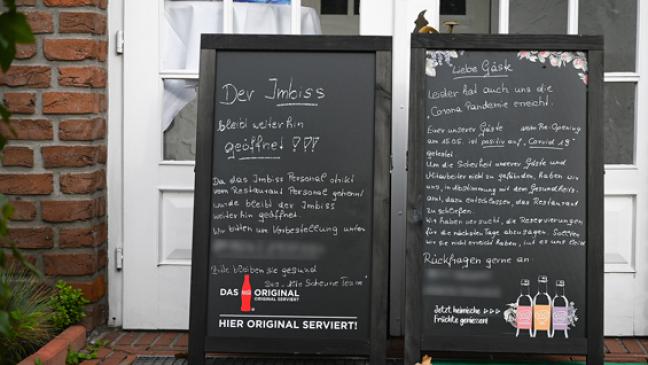 Der Imbiss
bleibt weiterhin
geöffnet !!!
Da das Imbiss Personal strikt
vom Restaurant Personal getrennt
wurde bleibt der Imbiss
weiterhin geöffnet.
Wir bitten um Vorbestellung unter
Bitte bleiben sie gesund
Das "Alte Scheune Team"
DAS ORIGINAL
ORIGINAL SERVIERT
HIER ORIGINAL SERVIERT!
Liebe Gäste
Leider hat auch uns die
"Corona Pandemie erreicht.
Einer unserer Gäste Pre-Opening
am 15.05. ist positiv auf "Covid 19"
getestet
Um die Sicherheit unserer Gäste und
Mitarbeiter nicht zu gefährden, haben wir
uns, in Abstimmung mit dem Gesundheits-
amt, dazu entschlossen, das Restaurant
zu schließen.
Wir haben versucht, die Reservierungen
für die nächsten Tage abzusagen. Sollten
wir sie nicht erreicht haben, tut es uns leid
Rückfragen gerne an:
Jetzt heimische
Früchte genießen!